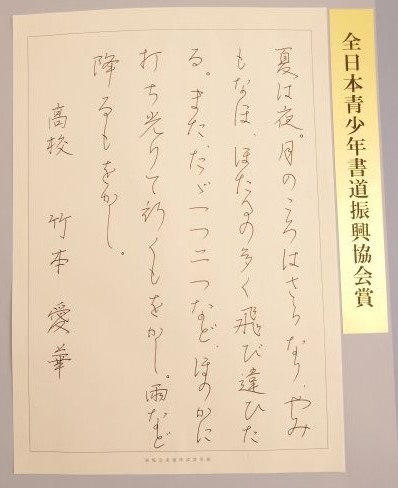 全日本青少年書道振興協会賞
夏は夜。月のころはさらなり、やみ
もなほ、ほたるの多く飛び違ひた
る。また、だゞ一つ二つなど、ほのかに
打ち光りて行くもをかし。雨など
降るもをかし。
高校 竹本 愛華